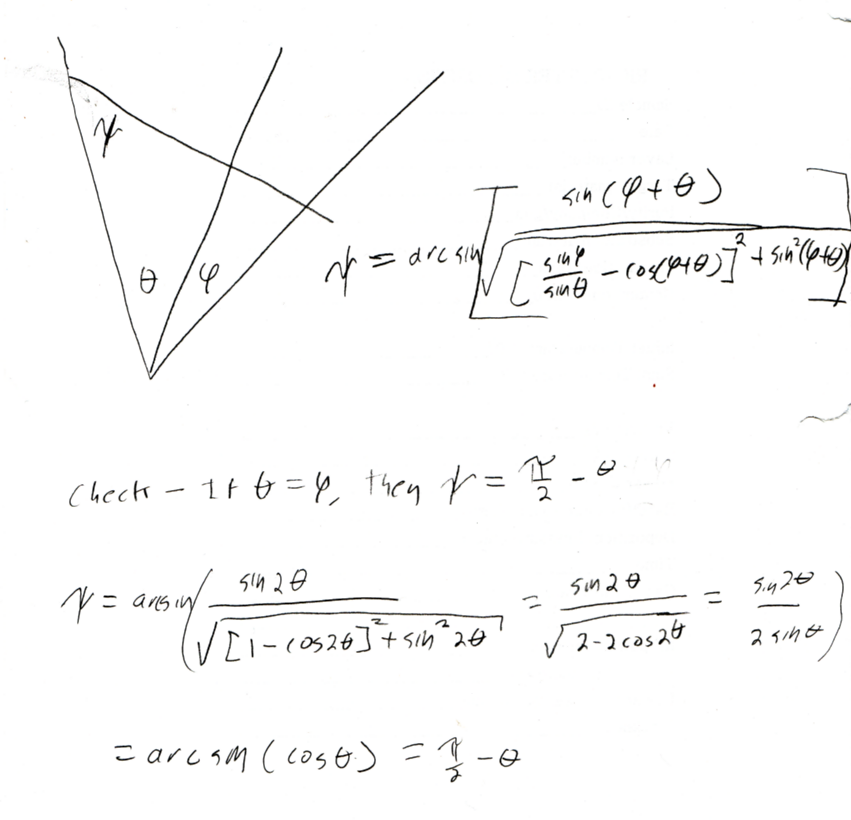 ψ
θ φ
ψ = arcsin[ sin(φ+θ) / √([sinφ/sinθ − cos(φ+θ)]² + sin²(φ+θ)) ]
Check – If θ = φ, then ψ = π/2 − θ
ψ = arcsin( sin 2θ / √([1 − cos2θ]² + sin² 2θ) = sin 2θ / √(2 − 2cos2θ) = sin2θ / 2 sinθ )
= arcsin(cosθ) = π/2 − θ